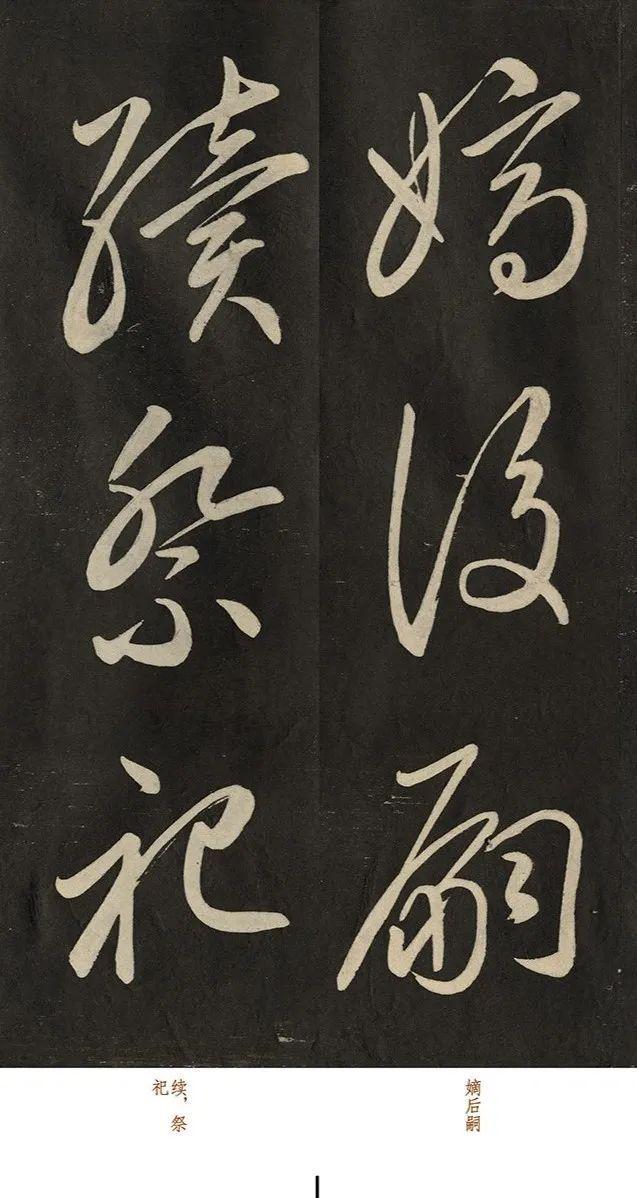 嫡後嗣
續祭祀
嫡后嗣
续，祭
祀